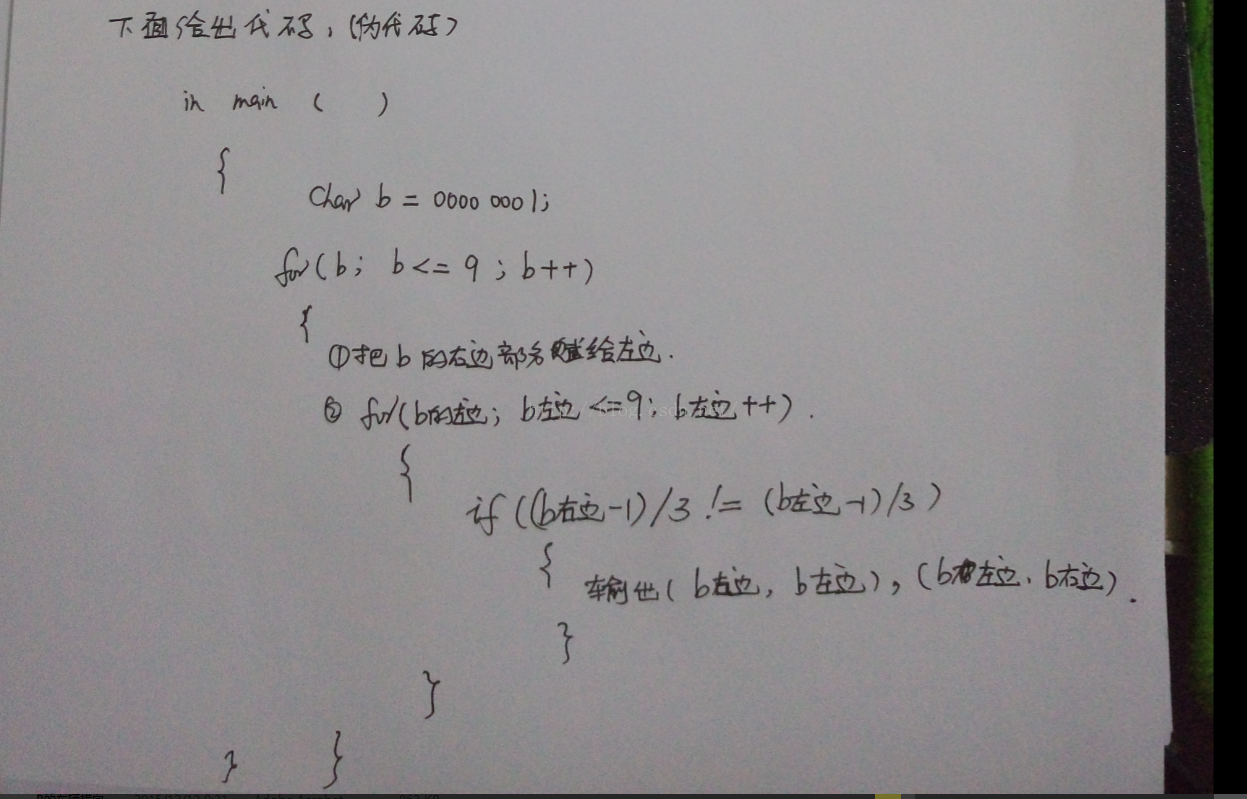 下面给出代码,(伪代码)
in main ( )
{
char b = 0000 0001;
for(b; b<=9; b++)
{
①把b的右边部分赋给左边.
② for(b的左边; b左边<=9; b左边++).
{
if((b右边-1)/3 != (b左边-1)/3)
{
输出(b右边, b左边), (b左边, b右边).
}
}
} }